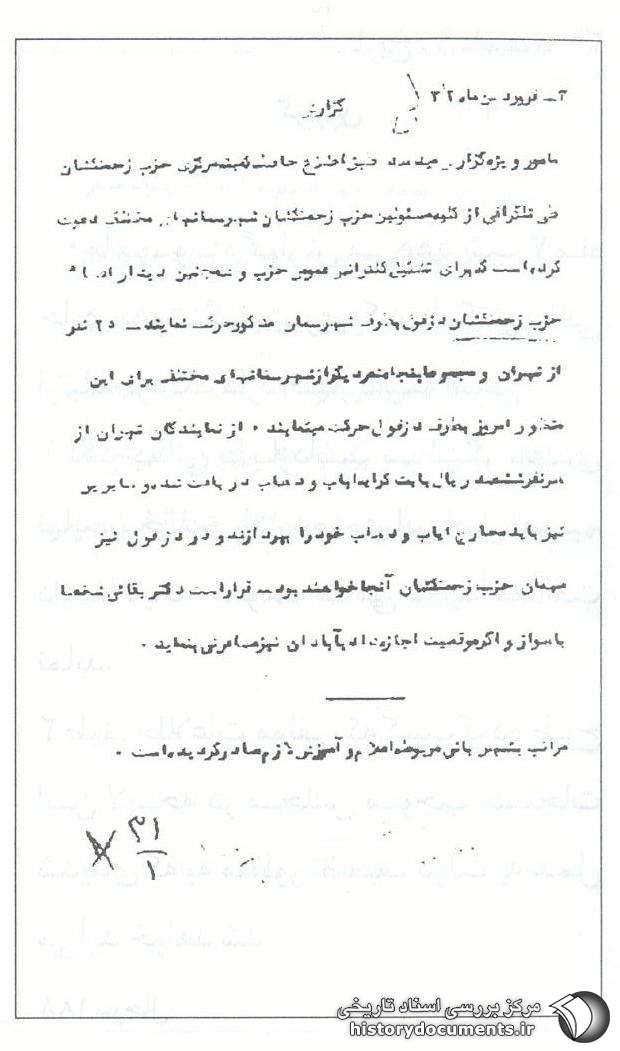 فروردین ماه ۳۲
گزارش
مامور ویژه گزارش میدهد طبق اطلاع حاصله کمیته مرکزی حزب زحمتکشان
طی تلگرافی از کلیه مسئولین حزب زحمتکشان شهرستانهای مختلف دعوت
کرده است که برای تشکیل کنفرانس عمومی حزب و همچنین دیدار
حزب زحمتکشان دزفول بطرف شهرستان مذکور حرکت نمایند ۲۵ نفر
از تهران و مجموعا پنجاه نفر دیگر از شهرستانهای مختلف برای این
منظور امروز بطرف دزفول حرکت مینمایند ۰ از نمایندگان تهران از
هر نفر ششصد ریال بابت کرایه ایاب و ذهاب دریافت شده و سایرین
نیز باید مخارج ایاب و ذهاب خود را بپردازند و در دزفول نیز
میهمان حزب زحمتکشان آنجا خواهند بود قرار است دکتر بقائی شخصا
باهواز و اگر موقعیت اجازه داد بآبادان نیز مسافرتی بنماید ۰
مراتب بشهربانی مربوطه اعلام و آموزش لازم صادر گردیده است ۰
۳۱
۱
مرکز بررسی اسناد تاریخی
historydocuments.ir